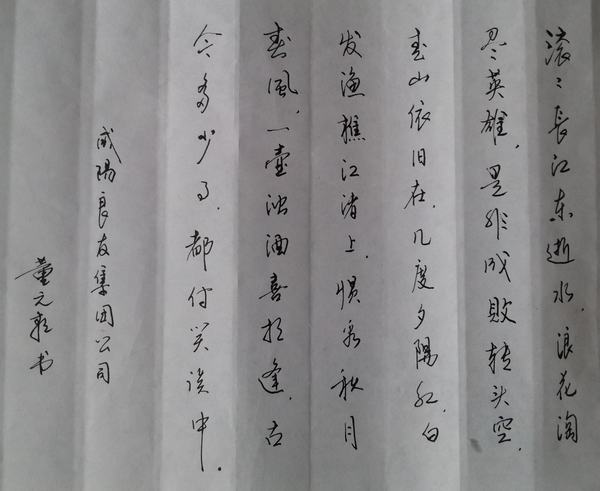 滚〻長江东逝水.浪花淘
尽英雄.是非成敗转头空.
青山依旧在.几度夕陽红.白
发渔樵江渚上.惯看秋月
春風.一壶浊酒喜相逢.古
今多少事.都付笑谈中.
咸陽良友集团公司
董元书